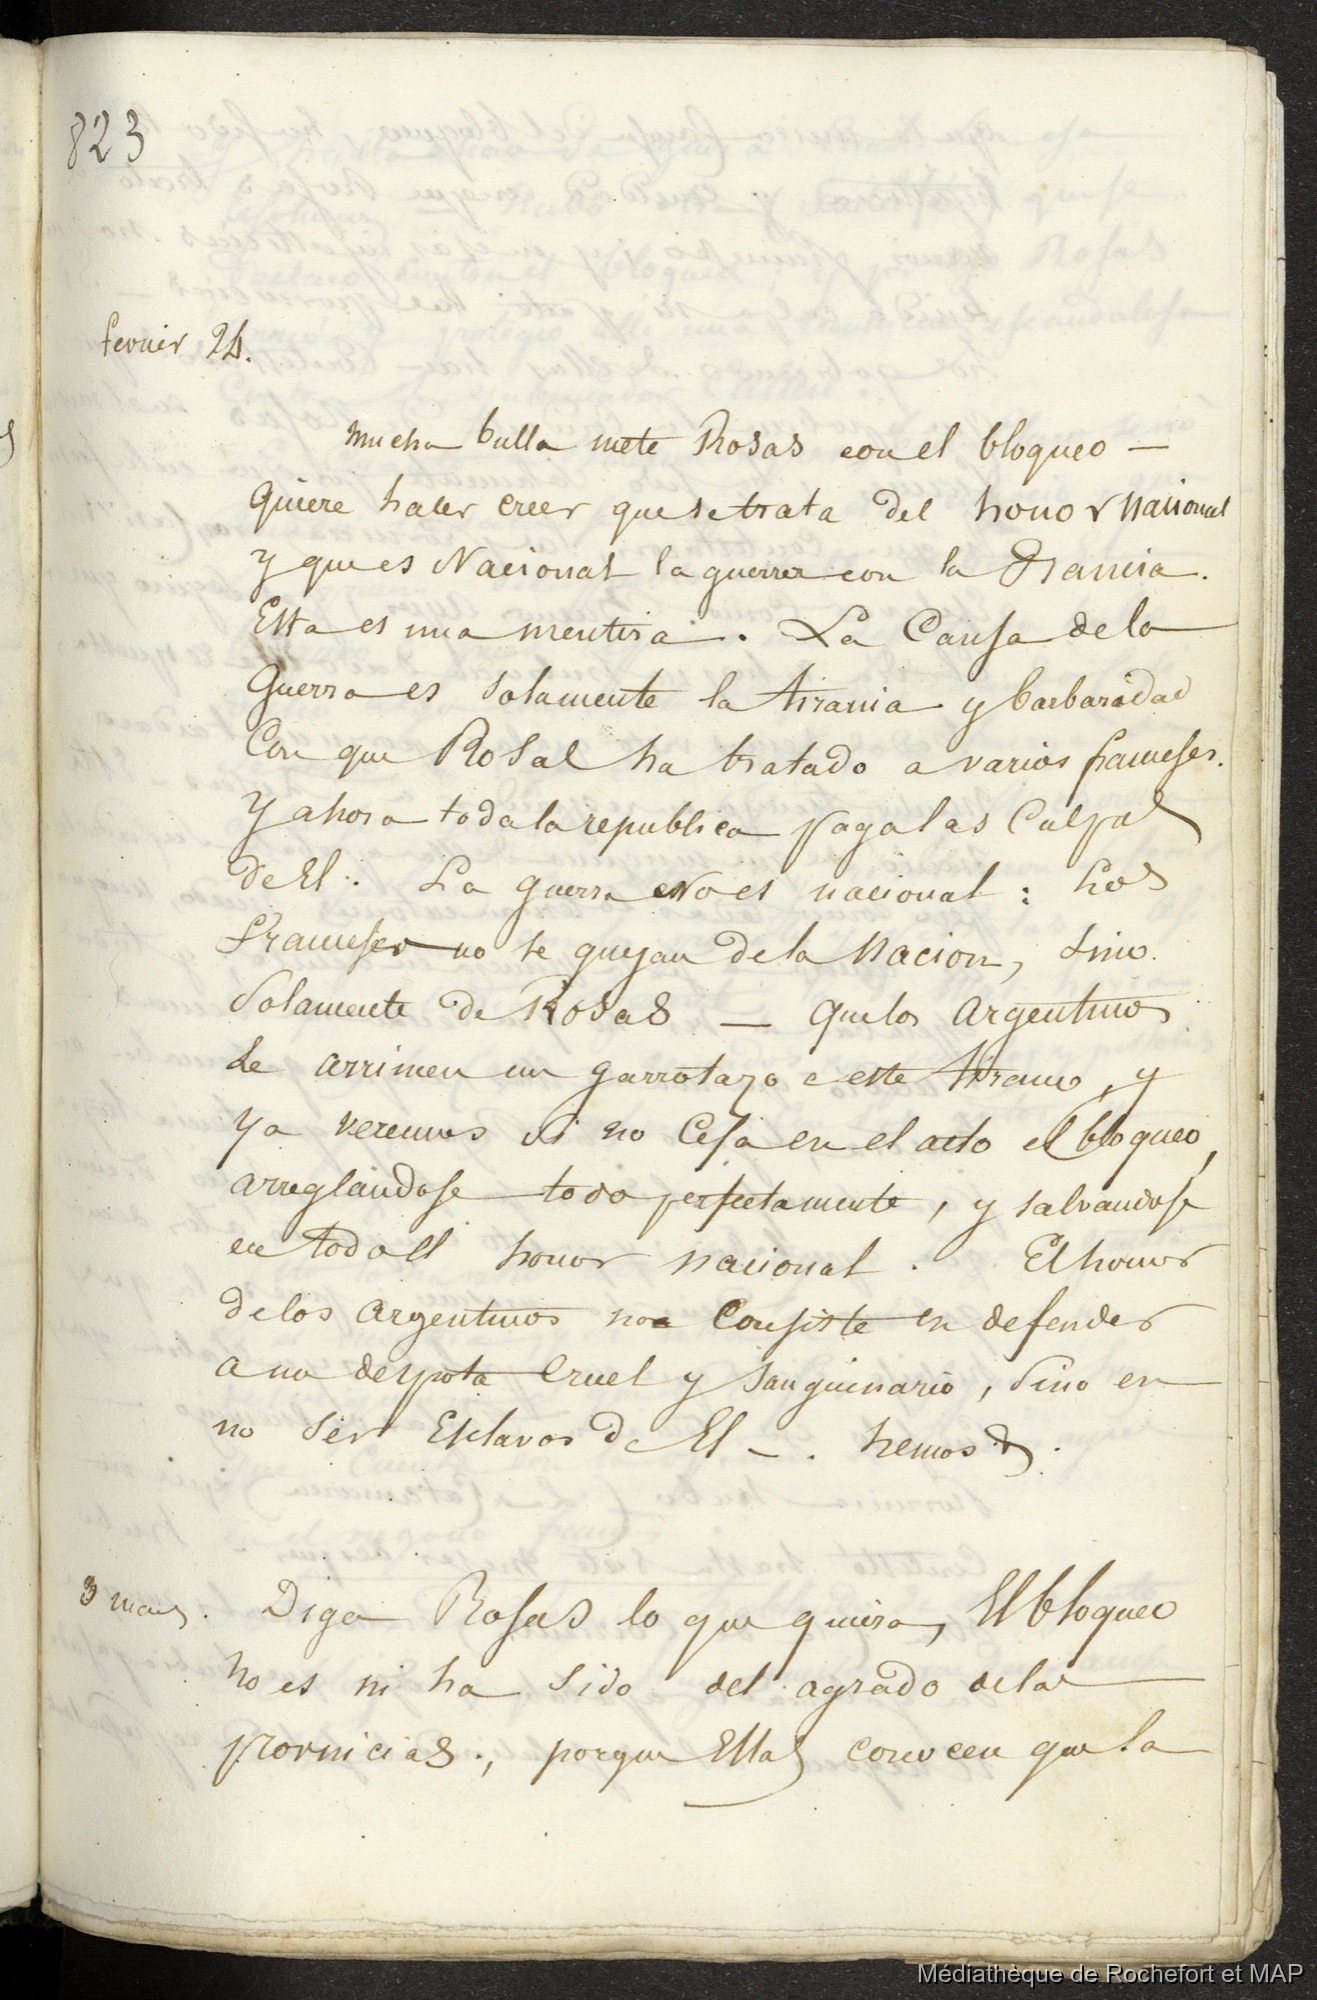 823
fevrier 24.
Mucha bulla mete Rosas con el bloqueo —
quiere hacer creer que se trata del honor nacional
y que es Nacional la guerra con la Francia.
Esta es una mentira. La Causa de la
Guerra es solamente la tirania y barbaridad
Con que Rosas ha tratado a varios franceses.
Y ahora toda la republica paga las Culpas
de El. La guerra No es nacional : Los
Franceses no se quejan de la Nacion, sino
Solamente de Rosas — que los Argentinos
le arrimen un garrotazo a este tirano, y
ya veremos si no Cesa en el acto el bloqueo,
arreglandose todo perfectamente, y salvandose
en todo el honor nacional. El honor
de los Argentinos no Consiste en defender
a un despota Cruel y sanguinario, Sino en
no ser Esclavos de El —. hemos
3 mars. Diga Rosas lo que quiera, El bloqueo
no es ni ha sido del agrado de las
provincias., porque Ellas conocen que la
Médiathèque de Rochefort et MAP